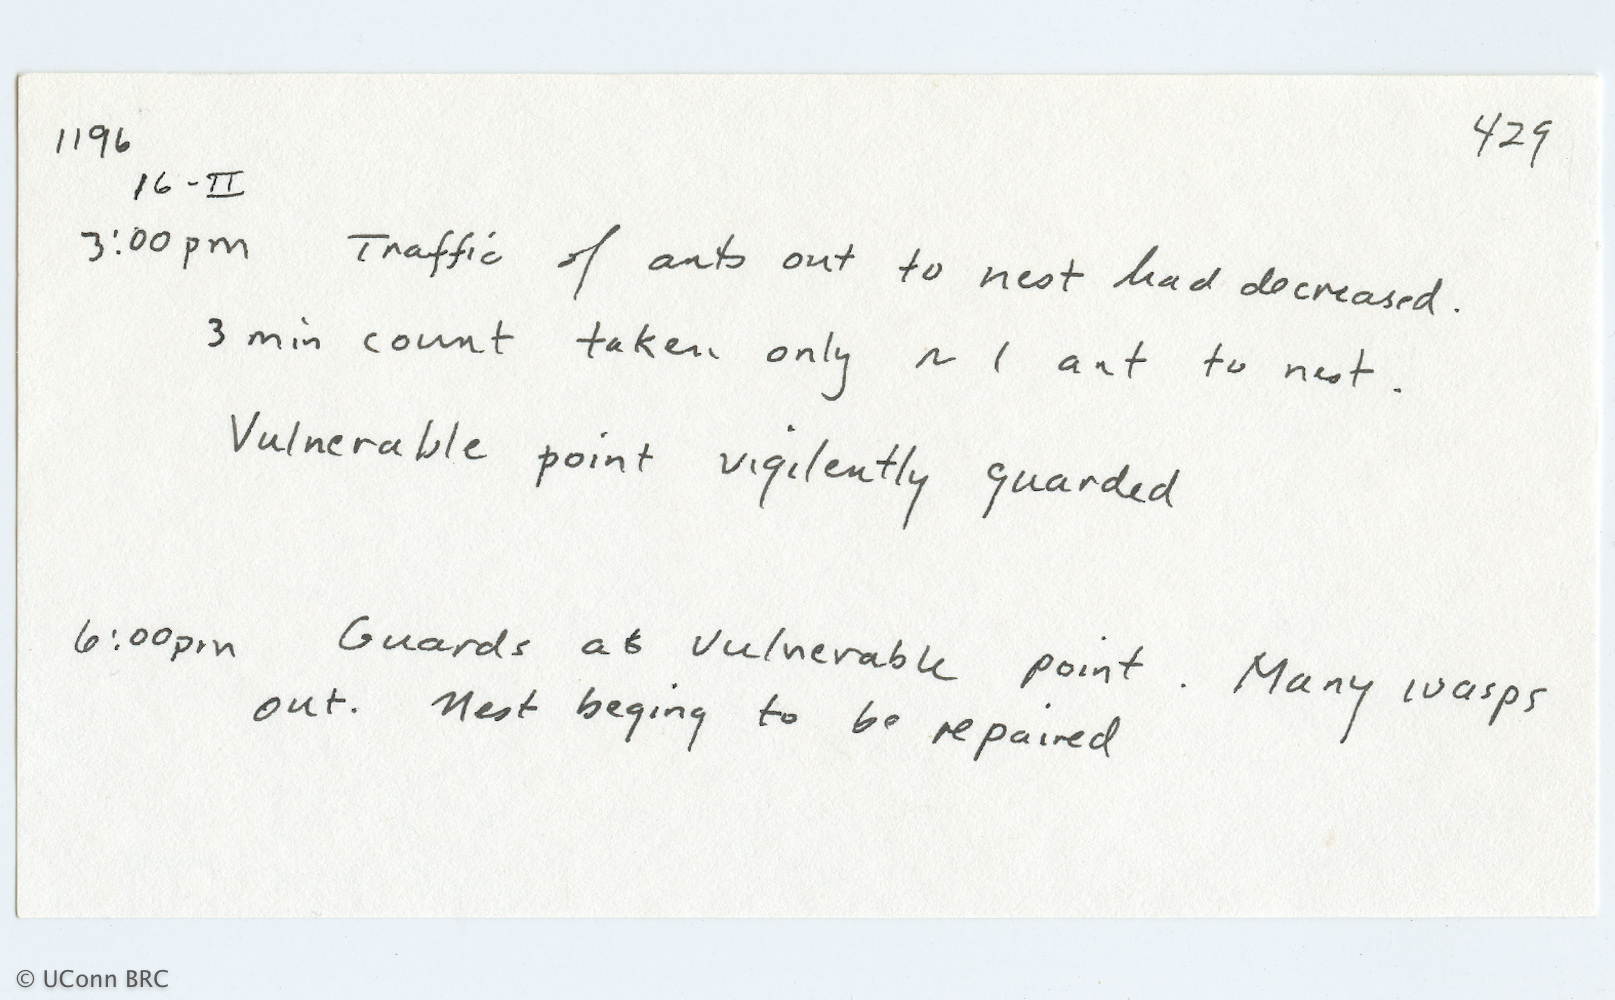 1196
429
16-II
3:00pm Traffic of ants out to nest had decreased.
3 min count taken only ~ 1 ant to nest.
Vulnerable point vigilently guarded
6:00pm Guards at vulnerable point. Many wasps
out. Nest beging to be repaired
© UConn BRC